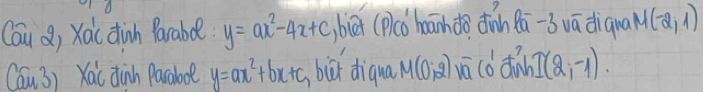 Câu 2, Xác định Parabol: y = ax² - 4x + c, biết (P) có hoành độ đỉnh là -3 và đi qua M(-2, 1)
Câu 3) Xác định Parabol y = ax² + bx + c, biết đi qua M(0; 2) và có đỉnh I(2; -1).